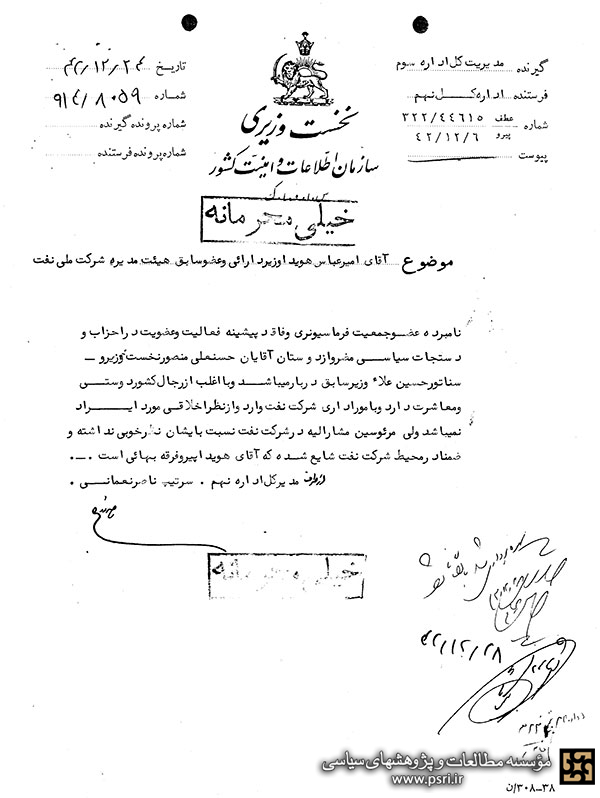 گیرنده مدیریت کل اداره سوم
فرستنده اداره کل نهم
شماره عطف ۳۲۲/۴۴۶۱۵
پیرو ۴۲/۱۲/۶
پیوست
نخست وزیری
سازمان اطلاعات و امنیت کشور
س.ا.و.ا.ک
تاریخ ۴۲/۱۲/۲۴
شماره ۹۱۴/۸۰۵۹
شماره پرونده گیرنده
شماره پرونده فرستنده
خیلی محرمانه
موضوع آقای امیرعباس هویدا وزیر دارائی و عضو سابق هیئت مدیره شرکت ملی نفت
نامبرده عضو جمعیت فراماسیونری و فاقد پیشینه فعالیت و عضویت در احزاب و
دستجات سیاسی مضره و از دوستان آقایان حسنعلی منصور نخست وزیر و –
سناتور حسین علاء وزیر سابق دربار میباشد و با اغلب از رجال کشور دوستی
و معاشرت دارد و بامور اداری شرکت نفت وارد و از نظر اخلاقی مورد ایراد
نمیباشد ولی مرئوسین مشارالیه در شرکت نفت نسبت بایشان نظر خوبی نداشته و
ضمناً در محیط شرکت نفت شایع شده که آقای هویدا پیرو فرقه بهائی است . ـ.
از طرف مدیر کل اداره نهم . سرتیپ ناصر نعمانی .
خیلی محرمانه
۴۲/۱۲/۲۸
مؤسسه مطالعات و پژوهشهای سیاسی
www.psri.ir
۳۸-۳۰۸/ن